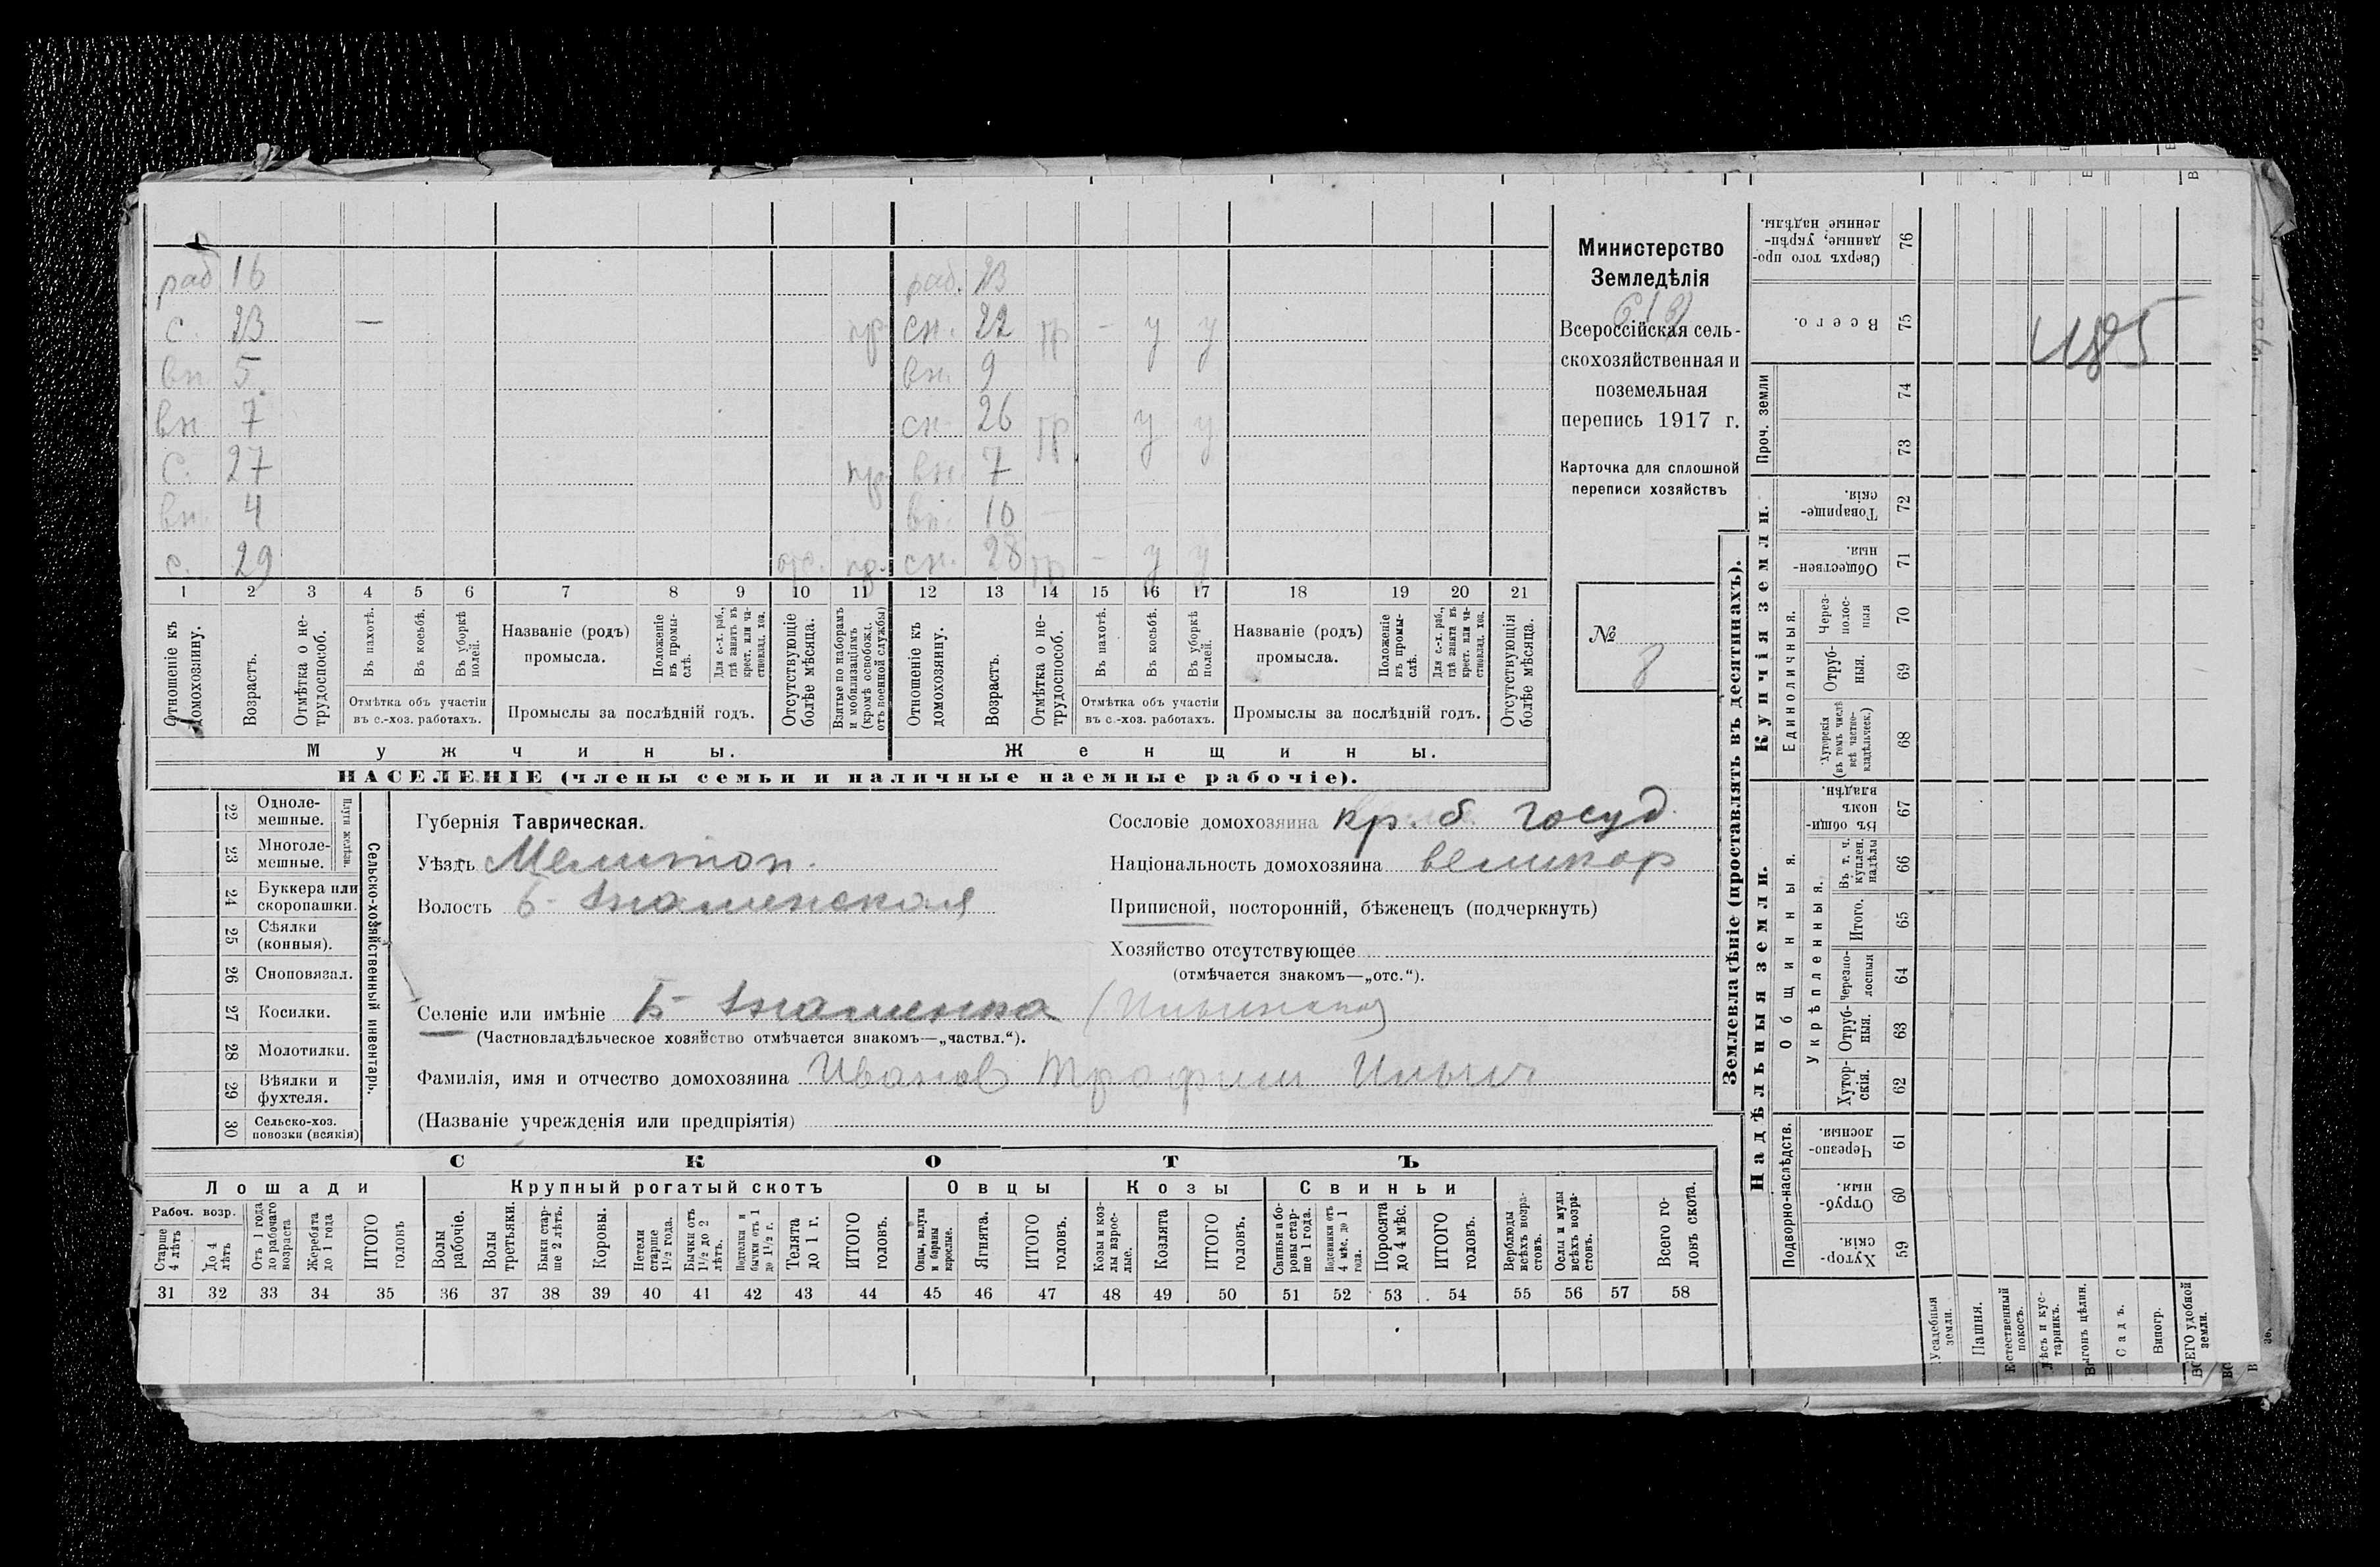 раб 16 раб. 23
с. 23 — пр. сн. 22 гр - у у
вн 5 вн. 9
вн 7 сн 26 гр у у
с. 27 пр. вн. 7
вн. 4 вн. 10
с. 29 отс. пр. сн. 28 гр - у у
1 2 3 4 5 6 7 8 9 10 11 12 13 14 15 16 17 18 19 20 21
Отношеніе къ домохозяину.
Возрастъ.
Отмѣтка о не-трудоспособ.
Въ пахотѣ.
Въ косьбѣ.
Въ уборкѣ полей.
Отмѣтка объ участіи
въ с.-хоз. работахъ.
Названіе (родъ)
промысла.
Положеніе въ промы-слѣ.
Для с.-х. раб., гдѣ занятъ въ крест. или ча-стновлад. хоз.
Промыслы за послѣдній годъ.
Отсутствующіе болѣе мѣсяца.
Взятые по наборамъ и мобилизаціямъ (кромѣ освобожд. отъ военной службы)
Отношеніе къ домохозяину.
Возрастъ.
Отмѣтка о не-трудоспособ.
Въ пахотѣ.
Въ косьбѣ.
Въ уборкѣ полей.
Отмѣтка объ участіи
въ с.-хоз. работахъ.
Названіе (родъ)
промысла.
Положеніе въ промы-слѣ.
Для с.-х. раб., гдѣ занята въ крест. или ча-стновлад. хоз.
Промыслы за послѣдній годъ.
Отсутствующія болѣе мѣсяца.
Мужчины. Женщины.
НАСЕЛЕНІЕ (члены семьи и наличные наемные рабочіе).
Министерство
Земледѣлія
Всероссійская сель-
скохозяйственная и
поземельная
перепись 1917 г.
Карточка для сплошной
переписи хозяйствъ
№
8
22 Одноле-
мешные.
23 Многоле-
мешные.
Плуги желѣзн.
24 Буккера или
скоропашки.
25 Сѣялки
(конныя).
26 Сноповязал.
27 Косилки.
28 Молотилки.
29 Вѣялки и
фухтеля.
30 Сельско-хоз.
повозки (всякія)
Сельско-хозяйственный инвентарь.
Губернія Таврическая.
Уѣздъ Мелитоп.
Волость Б-Знаменская
Сословіе домохозяина кр. б. госуд.
Національность домохозяина великор
Приписной, посторонній, бѣженецъ (подчеркнуть)
Хозяйство отсутствующее
(отмѣчается знакомъ—„отс.“).
Селеніе или имѣніе Б-Знаменка
(Частновладѣльческое хозяйство отмѣчается знакомъ—„частвл.“).
Фамилія, имя и отчество домохозяина Иванов Трофим Ильич
(Названіе учрежденія или предпріятія)
СКОТЪ
Лошади Крупный рогатый скотъ Овцы Козы Свиньи
Рабоч. возр.
Старше 4 лѣтъ
До 4 лѣтъ
Отъ 1 года до рабочаго возраста
Жеребята до 1 года
ИТОГО головъ
Волы рабочіе.
Волы третьяки.
Быки стар-ше 2 лѣтъ.
Коровы.
Нетели старше 1½ года.
Бычки отъ 1½ до 2 лѣтъ.
Подтелки и бычки отъ 1 до 1½ г.
Телята до 1 г.
ИТОГО головъ.
Овцы, валухи и бараны взрослые.
Ягнята.
ИТОГО головъ.
Козы и коз-лы взрос-лые.
Козлята
ИТОГО головъ.
Свиньи и бо-ровы стар-ше 1 года.
Подсвинки отъ 4 мѣс. до 1 года.
Поросята до 4 мѣс.
ИТОГО головъ.
Верблюды всѣхъ возра-стовъ.
Ослы и мулы всѣхъ возра-стовъ.
Всего го-ловъ скота.
31 32 33 34 35 36 37 38 39 40 41 42 43 44 45 46 47 48 49 50 51 52 53 54 55 56 57 58
Землевладѣніе (проставлять въ десятинахъ).
Сверхъ того про-данные, укрѣп-ленные надѣлы. 76
Всего. 75
1185
Проч. земли
74
73
Купчія земли.
Товарище-скія. 72
Обществен-ныя. 71
Единоличныя.
Через-полос-ныя 70
Отруб-ныя. 69
Хуторскія (въ томъ числѣ всѣ частно-владѣльческ.) 68
Надѣльныя земли.
Общинныя.
Въ общин-номъ владѣн. 67
Укрѣпленныя.
Въ т. ч. куплен. надѣлы 66
Итого. 65
Черезпо-лосныя 64
Отруб-ныя. 63
Хутор-скія. 62
Подворно-наслѣдств.
Черезпо-лосныя. 61
Отруб-ныя. 60
Хутор-скія. 59
Усадебныя земли.
Пашня.
Естественный покосъ.
Лѣсъ и кус-тарникъ.
Выгонъ цѣлин.
Садъ.
Виногр.
ВСЕГО удобной земли.